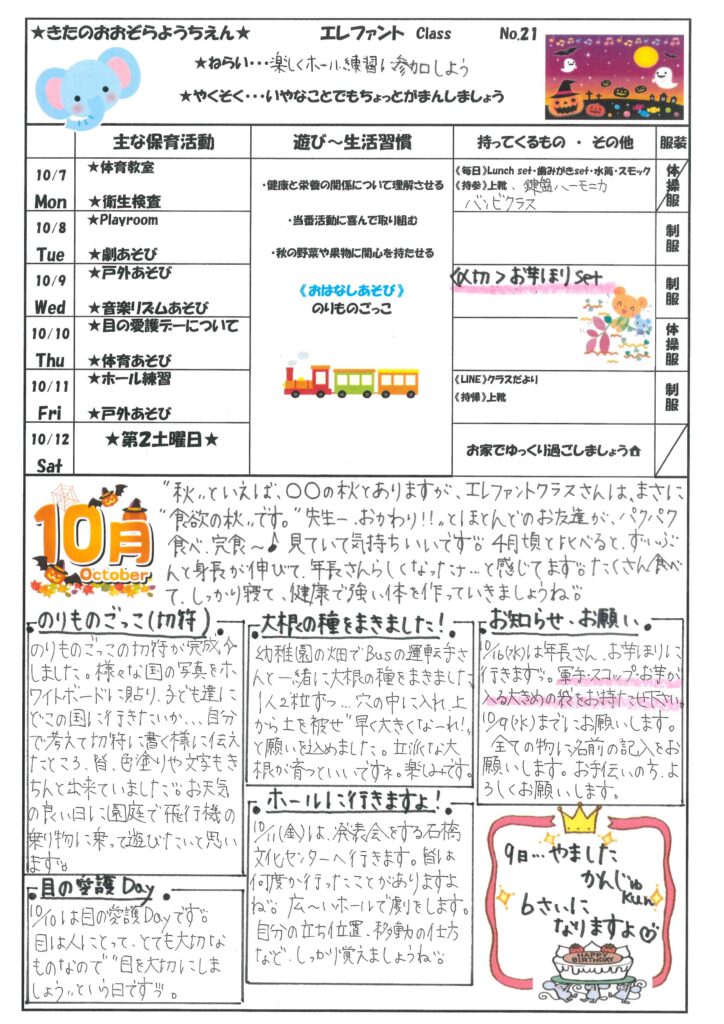 ★きたのおおぞらようちえん★　エレファント Class　No,21
★ねらい・・・楽しくホール練習に参加しよう
★やくそく・・・いやなことでもちょっとがまんしましょう
主な保育活動　遊び～生活習慣　持ってくるもの ・ その他　服装
10/7 Mon
★体育教室
★衛生検査
《毎日》Lunch set・歯みがきset・水筒・スモック
《持参》上靴、鍵盤ハーモニカ
バンビクラス
体操服
10/8 Tue
★Playroom
★劇あそび
制服
10/9 Wed
★戸外あそび
★音楽リズムあそび
〈〆切〉お芋ほりset
制服
10/10 Thu
★目の愛護デーについて
★体育あそび
体操服
10/11 Fri
★ホール練習
★戸外あそび
《LINE》クラスだより
《持帰》上靴
制服
10/12 Sat
★第2土曜日★
お家でゆっくり過ごしましょう
・健康と栄養の関係について理解させる
・当番活動に喜んで取り組む
・秋の野菜や果物に関心を持たせる
《おはなしあそび》
のりものごっこ
10月
October
"秋"といえば、〇〇の秋とありますが、エレファントクラスさんは、まさに
"食欲の秋"です。"先生ー、おかわり!!"とほとんどのお友達が、パクパク
食べ、完食～♪見ていて気持ちいいです。4月頃と比べると、ずいぶ
んと身長が伸びて、年長さんらしくなったナ…と感じてます。たくさん食べ
て、しっかり寝て、健康で強い体を作っていきましょうね。
のりものごっこ(切符)
のりものごっこの切符が完成
しました。様々な国の写真をホ
ワイトボードに貼り、子ども達に
どこの国に行きたいか、、、自分
で考えて切符に書く様に伝え
たところ、皆、色塗りや文字もき
ちんと出来ていました。お天気
の良い日に園庭で飛行機の
乗り物に乗って遊びたいと思い
ます。
目の愛護Day
10/10は目の愛護Dayです。
目は人にとって、とても大切な
ものなので"目を大切にしま
しょう"という日です。
大根の種をまきました!
幼稚園の畑でBusの運転手さ
んと一緒に大根の種をまきました
1人2粒ずつ…穴の中に入れ、上
から土を被せ"早く大きくなーれ!"
と願いを込めました。立派な大
根が育つといいですネ。楽しみです。
ホールに行きますよ!
10/11(金)は、発表会をする石橋
文化センターへ行きます。皆は
何度か行ったことがありますよ
ね。広～いホールで劇をします。
自分の立ち位置、移動の仕方
など、しっかり覚えましょうね。
お知らせ、お願い
10/16(水)は年長さん、お芋ほりに
行きます。軍手・スコップ・お芋が
入る大きめの袋をお持たせ下さい。
10/9(水)までにお願いします。
全ての物に名前の記入をお
願いします。お手伝いの方、よ
ろしくお願いします。
9日…やました
かんじ kun
6さいに
なりますよ♡
HAPPY
BIRTHDAY